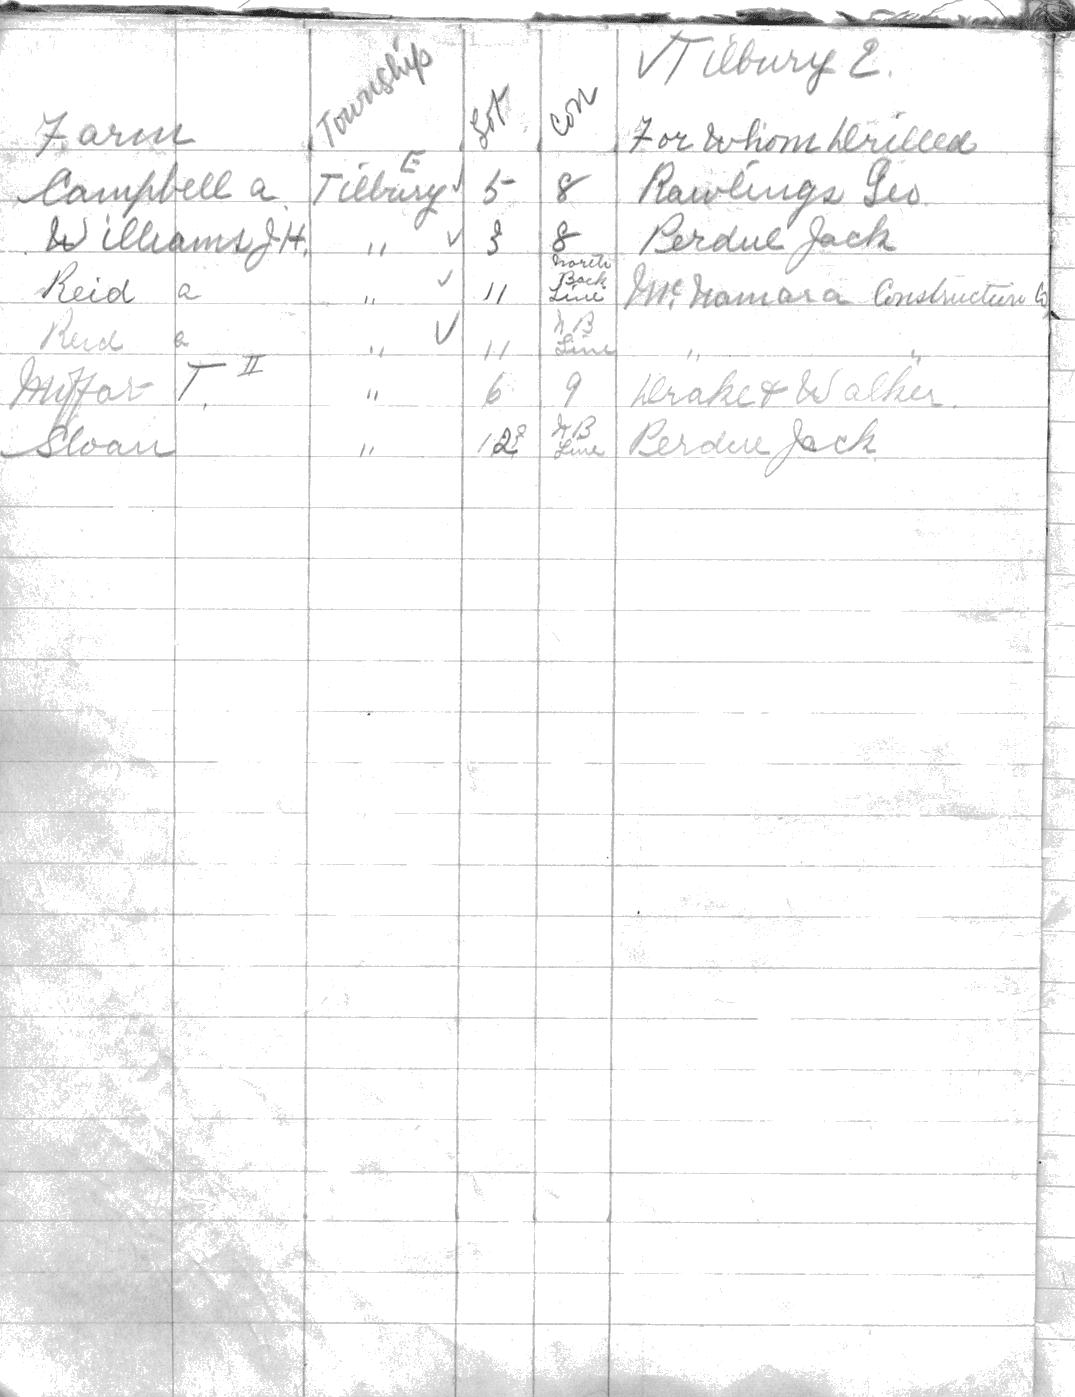 √ Tilbury E.
Farm Township Lot Con For Whom Drilled
Campbell a. Tilbury E √ 5 8 Rawlings Geo.
Williams J.H. " √ 8
Perdue Jack
Reid a " √ 11 North Back Line Mc. Namara Construction Co
Reid a " √ 11 N B Line " "
T. II " 6 9 Drake & Walker.
Sloan " N B Line Perdue Jack